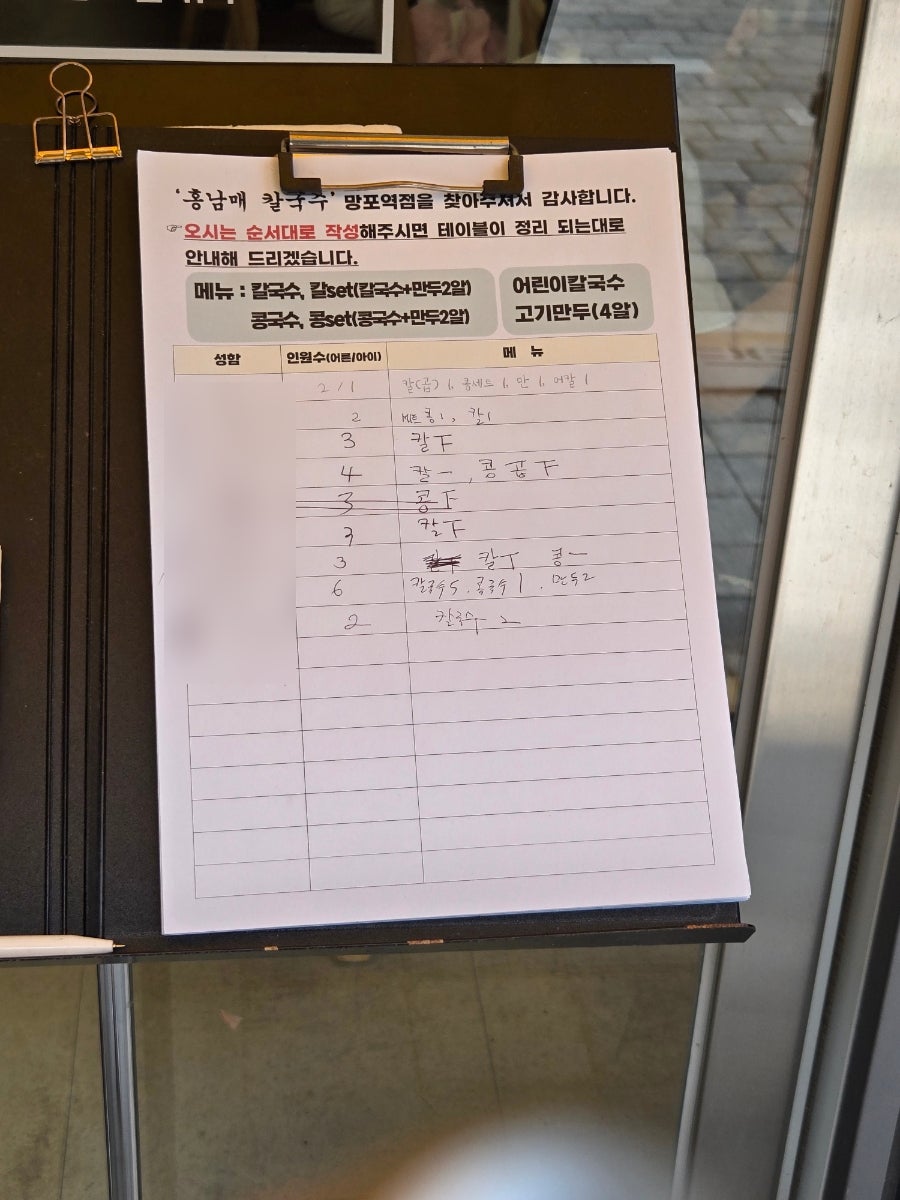 '홍남매 칼국수' 망포역점을 찾아주셔서 감사합니다.
☞오시는 순서대로 작성해주시면 테이블이 정리 되는대로
안내해 드리겠습니다.
메뉴 : 칼국수, 칼set(칼국수+만두2알)
콩국수, 콩set(콩국수+만두2알)
어린이칼국수
고기만두(4알)
성함 인원수(어른/아이) 메 뉴
2/1 칼(곱) 1, 콩세트 1, 만 1, 어칼 1
2 세트 콩1, 칼1
3 칼 F
4 칼 一, 콩 곱 F
3 콩 F
3 칼 F
3 칼 T 콩 一
6 칼국수5, 콩국수1, 만두2
2 칼국수 2